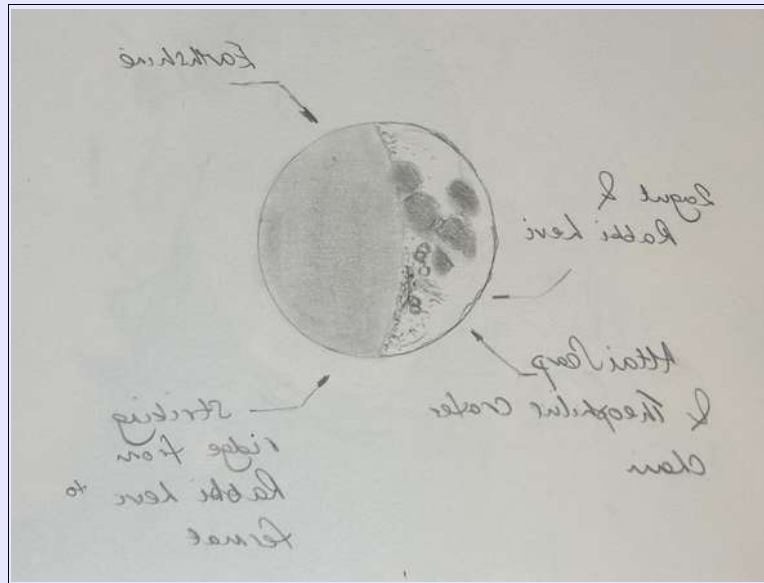 Earthshine
Zagut &
Rabbi Levi
Altai Scarp
& Theophilus Crater
Chain
Striking
ridge from
Rabbi Levi to
Fermat